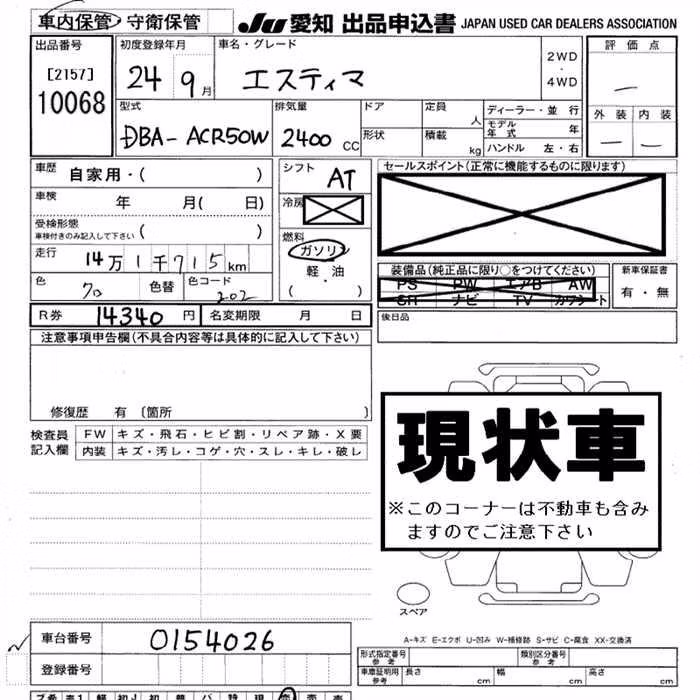 車内保管・守衛保管
JU 愛知 出品申込書 JAPAN USED CAR DEALERS ASSOCIATION
出品番号 初度登録年月 車名・グレード 2WD・4WD 評価点
[2157]
10068
24 9月 エスティマ —
型式 排気量 ドア 定員 人 ディーラー・並行 外装 内装
DBA-ACR50W 2400 CC 形状 積載 kg モデル年式 年 — —
ハンドル 左・右
車歴 自家用・( ) シフト AT セールスポイント(正常に機能するものに限ります)
車検 年 月( 日) 冷房
受検形態
車検付きのみ記入して下さい ( )
燃料 ガソリン 軽油 ・( )
走行 14万1千715km
色 クロ 色替 色コード 202
装備品(純正品に限り○をつけてください) 新車保証書
PS PW エアB AW 有・無
SR ナビ TV カワシート
R券 14340円 名変期限 月 日 後日品
注意事項申告欄(不具合内容等は具体的に記入して下さい)
修復歴 有 〔箇所 〕
検査員記入欄 FW キズ・飛石・ヒビ割・リペア跡・X要
内装 キズ・汚レ・コゲ・穴・スレ・キレ・破レ
現状車
※このコーナーは不動車も含み
ますのでご注意下さい
スペア
A-キズ E-エクボ U-凹み W-補修跡 S-サビ C-腐食 XX-交換済
車台番号 0154026
登録番号
型式指定番号 参考 類別区分番号 参考
車庫証明用 参考 長さ cm 幅 cm 高さ cm